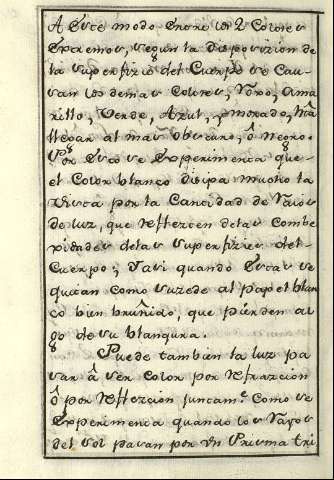 A Este modo Entre los 2 Colores
Extremos, segun la disposizion de
la superfizie del Cuerpo se Cau-
san los demas Colores, Roxo, Ama
rillo, Verde, Azul, y morado, hta
llegar al mas Obscuro, ô Negro.
Por Esto se Experimenta que
el Color blanco disipa mucho la
Vista por la Cantidad de Raios
de luz, que Reflecten delas Combe
xidades delas superfizies del
Cuerpo; y asi quando Estas se
quitan como suzede al papel blan
co bien bruñido, que pierden al
go de su blanqura.
Puede tambien la luz pa
sar â ser Color por Refraczion
ô por Refleczion juntamte. Como se
Experimenta quando los Rayos
del sol pasan por un Prisma tri